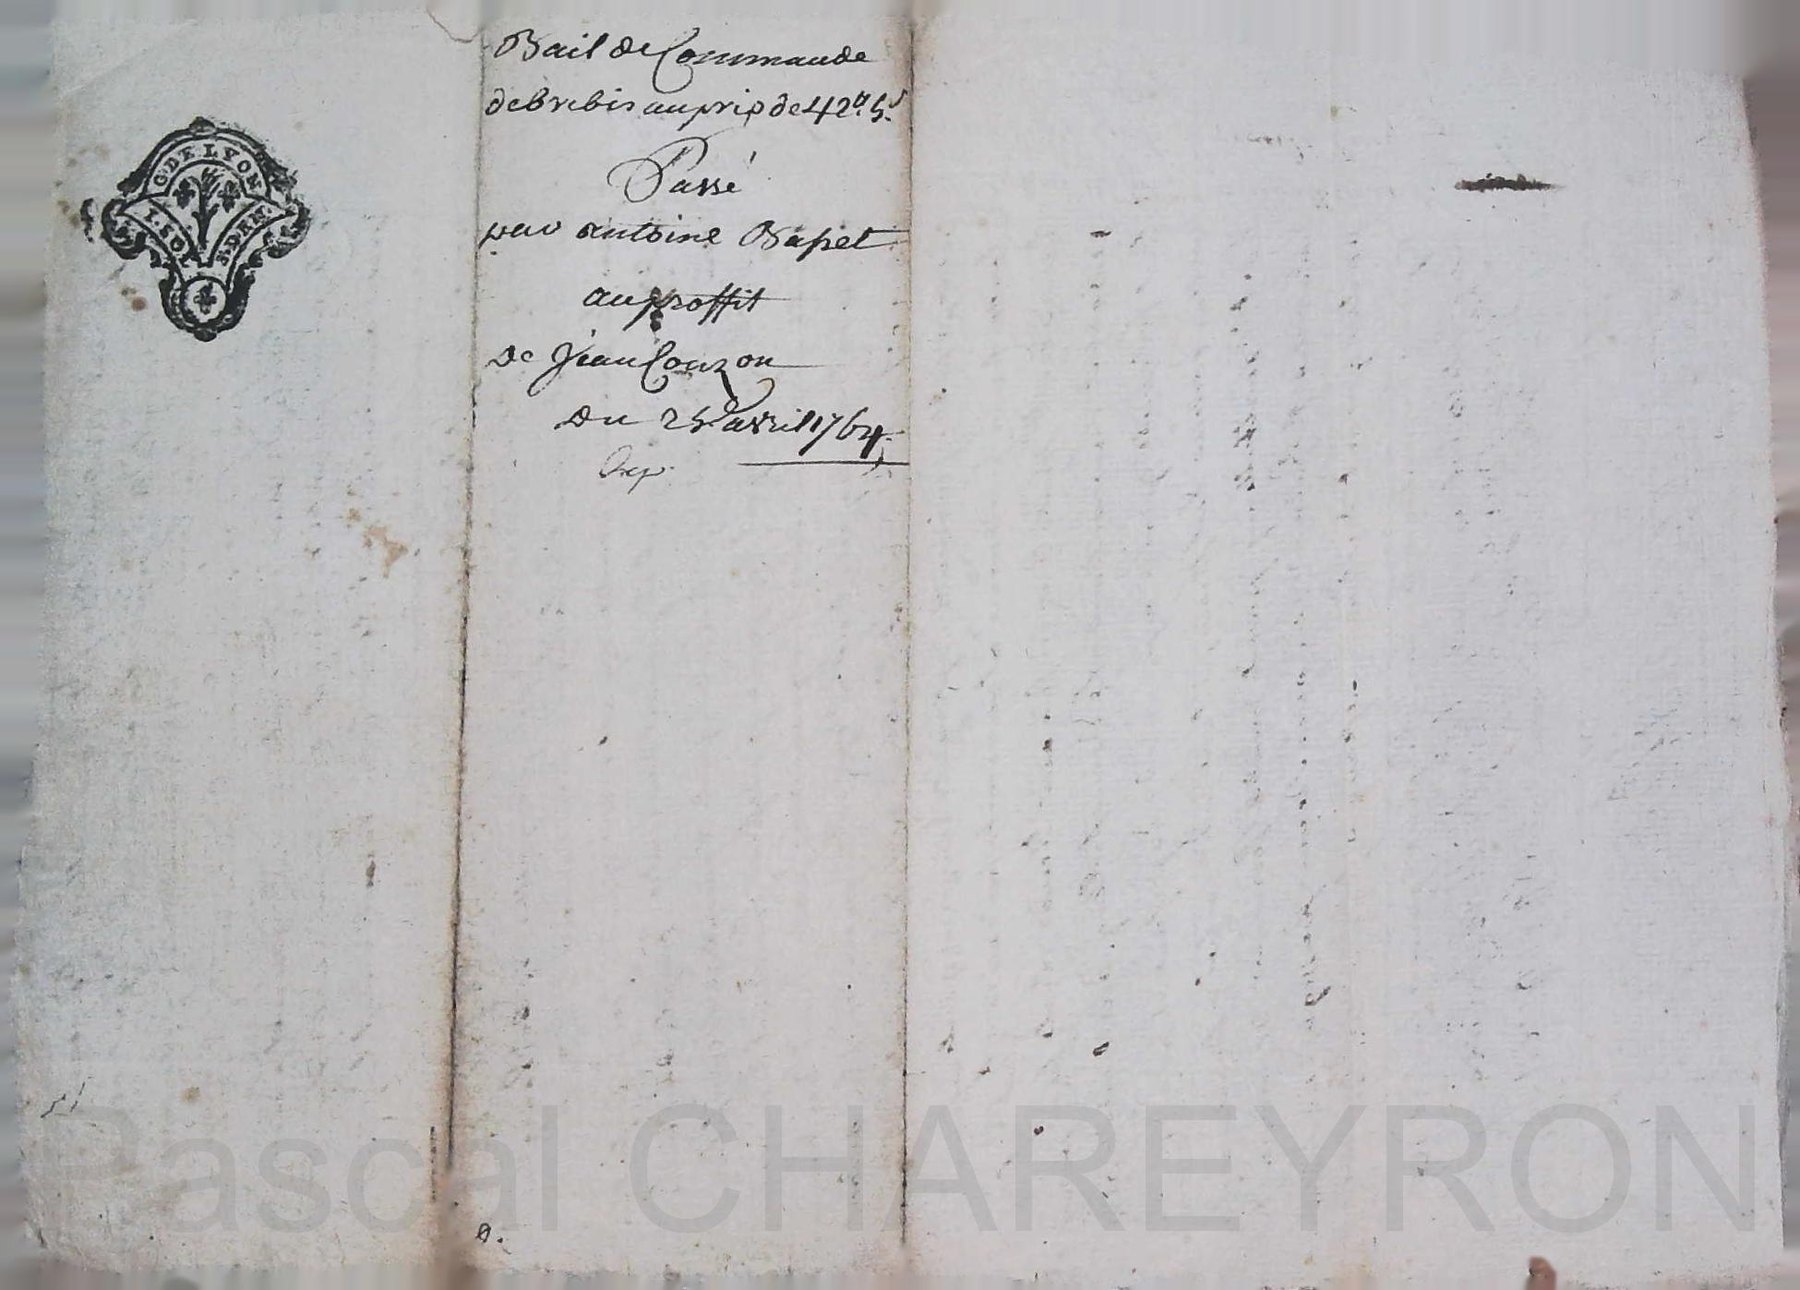 G. DE LYON
1. SO
8. DEN.
Bail de Commande
de brebis au prix de 42lt. 5s
Passé
par antoine Bapet
au proffit
de Jean Couzon
du 25 avril 1764
Pascal CHAREYRON